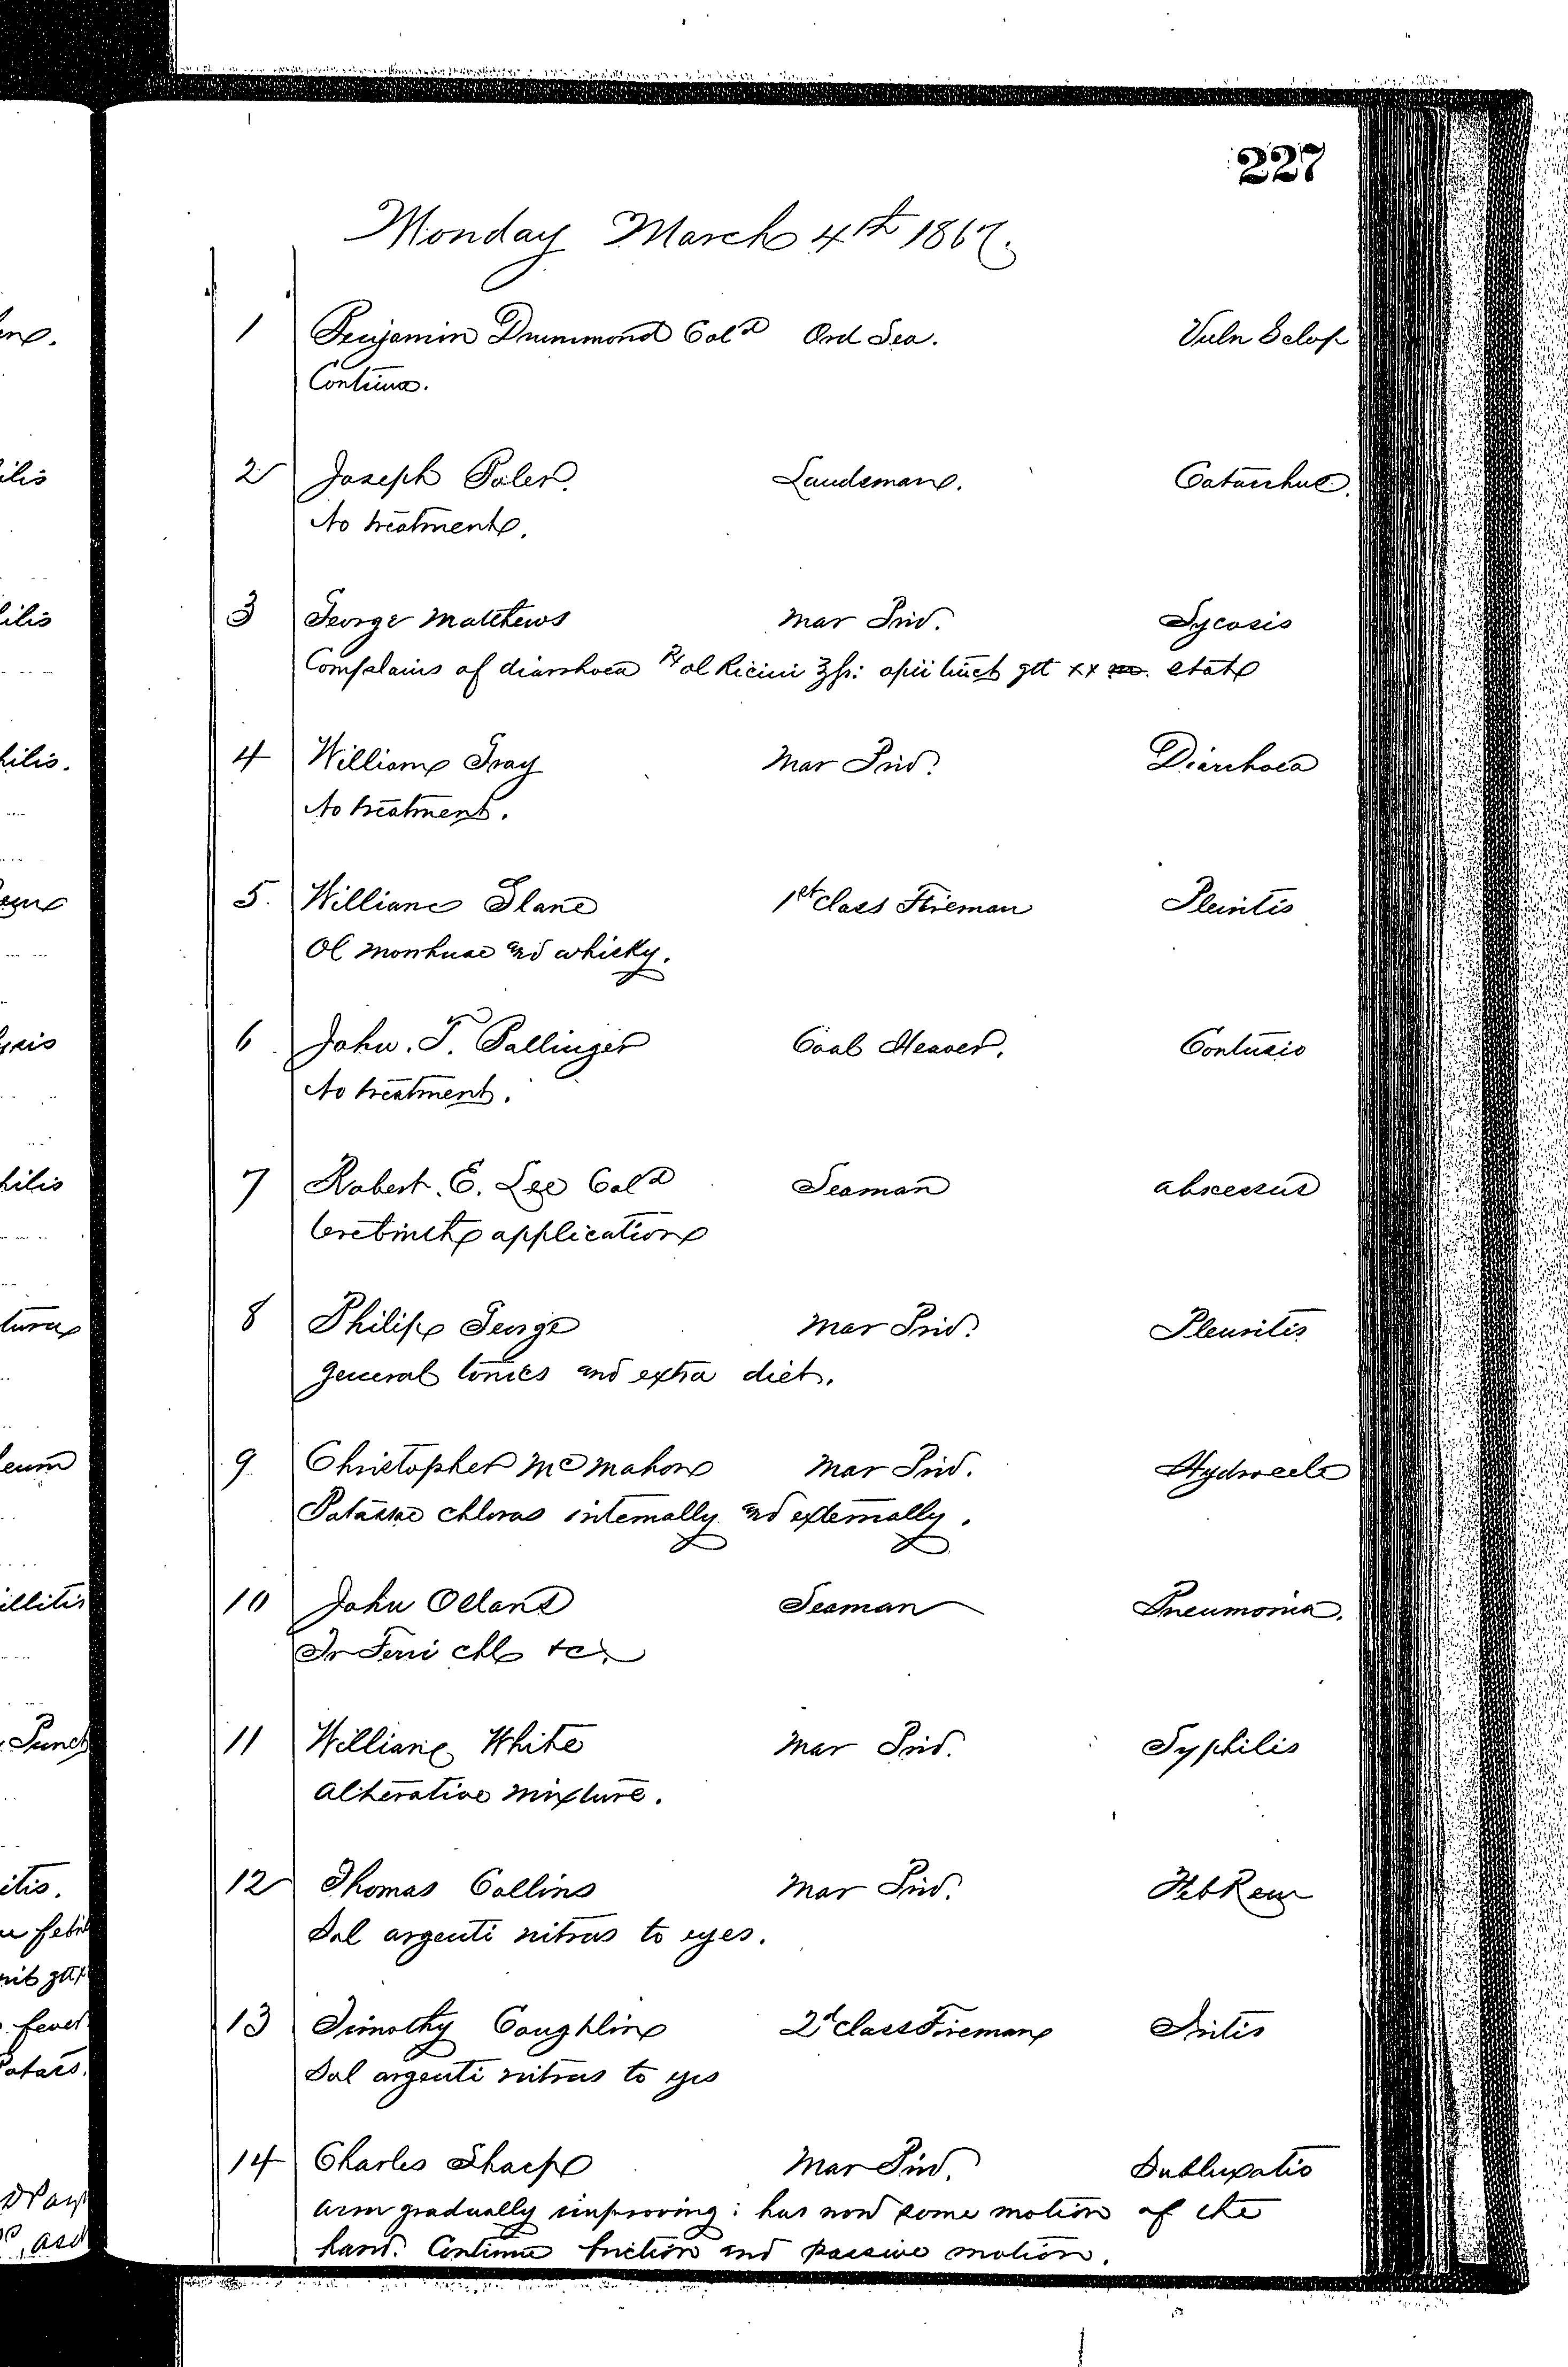 227
Monday March 4th 1867.
1 Benjamin Drummond Cold Ord Sea. Vuln Sclop
Continue.
2 Joseph Poler. Landsman. Catarrhus.
No treatment.
3 George Matthews Mar Priv. Sycosis
Complains of diarrhoea ℞ ol Ricini ℥ss: opii tinct gtt xx stat
4 William Gray Mar Priv. Diarrhoea
No treatment.
5. William Slane 1st Class Fireman Pleuritis
Ol morrhuae and whisky.
6 John. T. Ballinger Coal Heaver. Contusio
No treatment.
7 Robert. E. Lee Cold Seaman abscessus
application
8 Philip George Mar Priv. Pleuritis
general tonics and extra diet.
9 Christopher McMahon Mar Priv. Hydrocele
Potassae chloras internally and externally.
10 John Olland Seaman Pneumonia.
Tr Ferri chl &c.
11 William White Mar Priv. Syphilis
Alterative mixture.
12 Thomas Collins Mar Priv. Feb Rem
Sol argenti nitras to eyes.
13 Timothy Coughlin 2d Class Fireman Iritis
Sol argenti nitras to eyes
14 Charles Sharp Mar Priv. Subluxatio
Arm gradually improving: has now some motion of the
hand. Continue friction and passive motion.